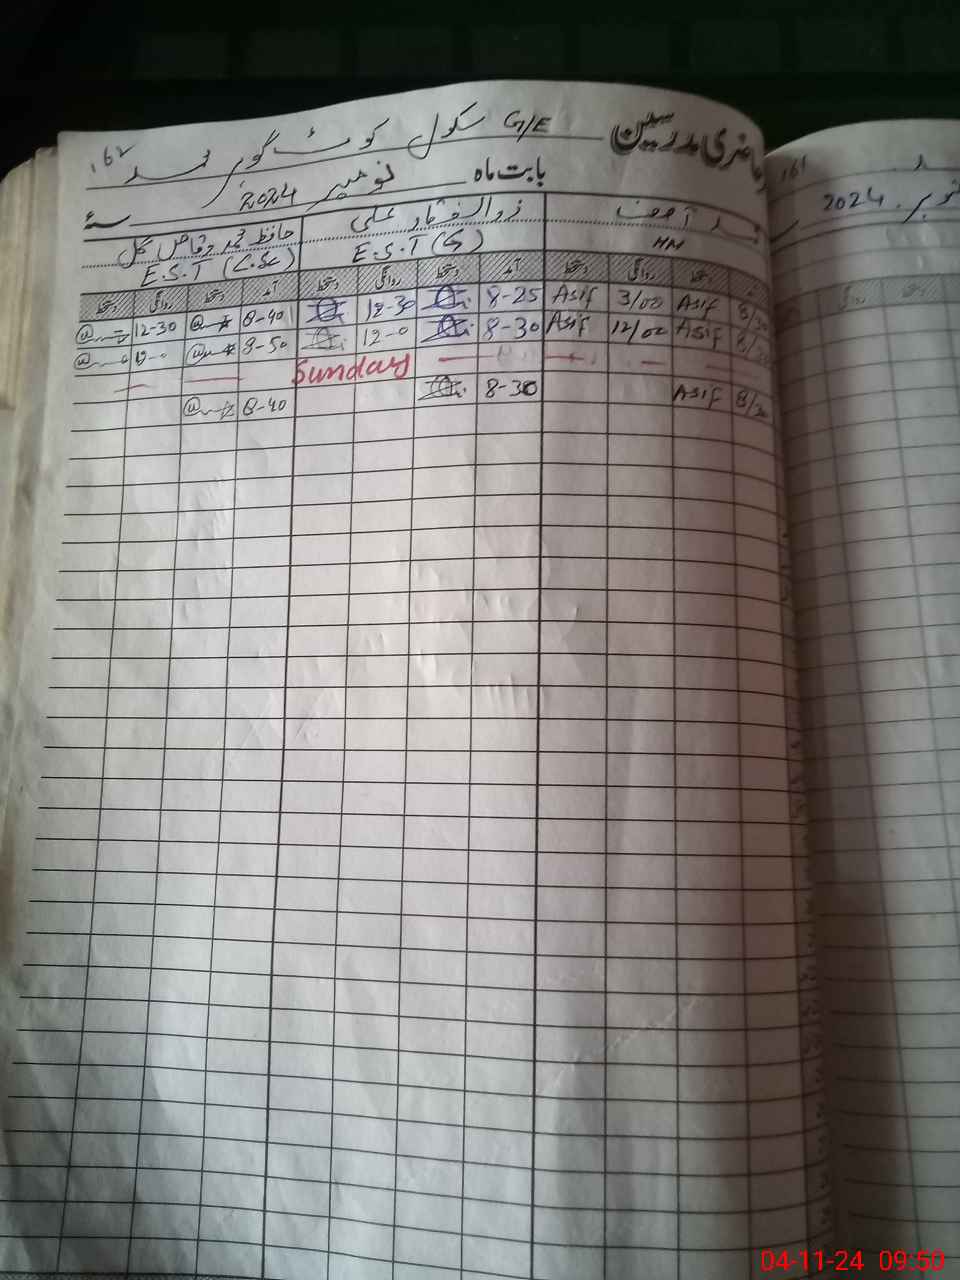 حاضری مدرسین G/E سکول کوٹ گور محمد 162
بابت ماہ نومبر 2024 سنہ
محمد آصف ذوالفقار علی حافظ محمد وقاص گل
HM E.S.T (G) E.S.T (C.Sc)
آمد دستخط روانگی دستخط آمد دستخط روانگی دستخط آمد دستخط روانگی دستخط
8/30 Asif 3/00 Asif 8-25 12-30 8-40 12-30
8/30 Asif 12/00 Asif 8-30 12-0 8-50 12-0
Sunday
8/30 Asif 8-30 8-40
161
2024
روانگی
04-11-24 09:50